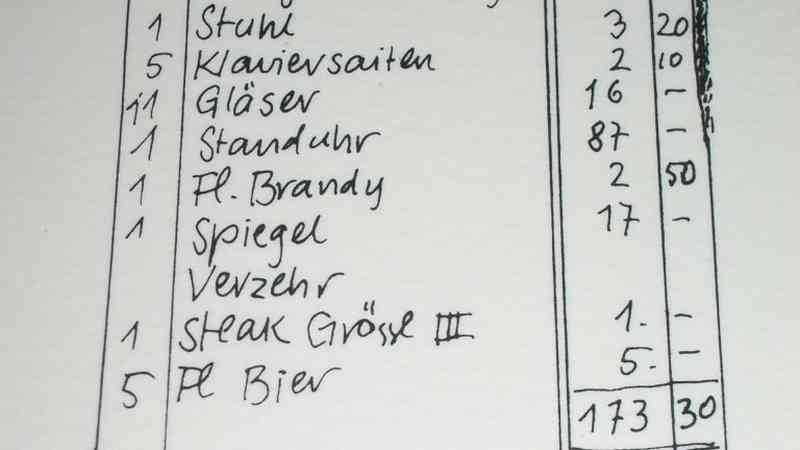 1 Stuhl 3 20
5 Klaviersaiten 2 10
11 Gläser 16 -
1 Standuhr 87 -
1 Fl. Brandy 2 50
1 Spiegel 17 -
Verzehr
1 Steak Grösse III 1. -
5 Fl Bier 5. -
173 30